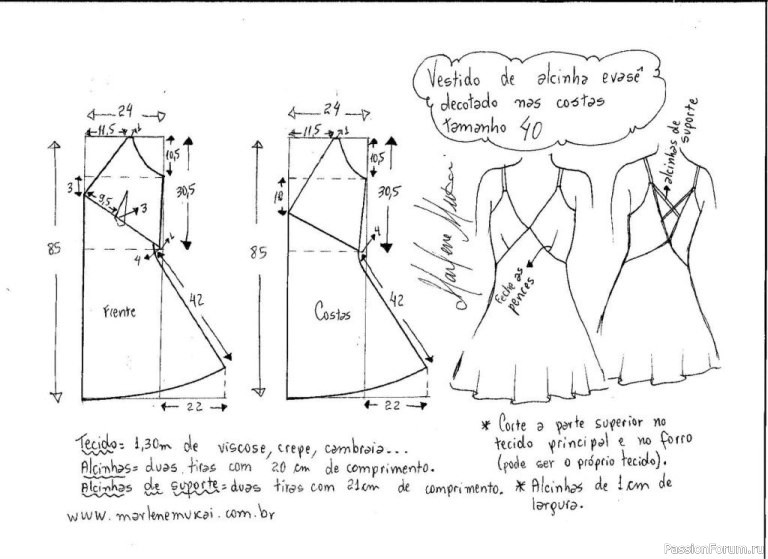 Vestido de alcinha evasê
decotado nas costas
tamanho 40
24
11,5
1
10,5
3
9,5
3
30,5
85
4
1
42
Frente
22
24
11,5
1
10,5
10
30,5
85
4
42
Costas
22
Marlene Mukai
Feche as
pences
alcinhas de
suporte
Tecido= 1,30m de viscose, crepe, cambraia...
Alcinhas= duas tiras com 20 cm de comprimento.
Alcinhas de suporte= duas tiras com 21cm de comprimento.
www.marlenemukai.com.br
* Corte a parte superior no
tecido principal e no forro
(pode ser o próprio tecido).
* Alcinhas de 1cm de
largura.
PassionForum.ru